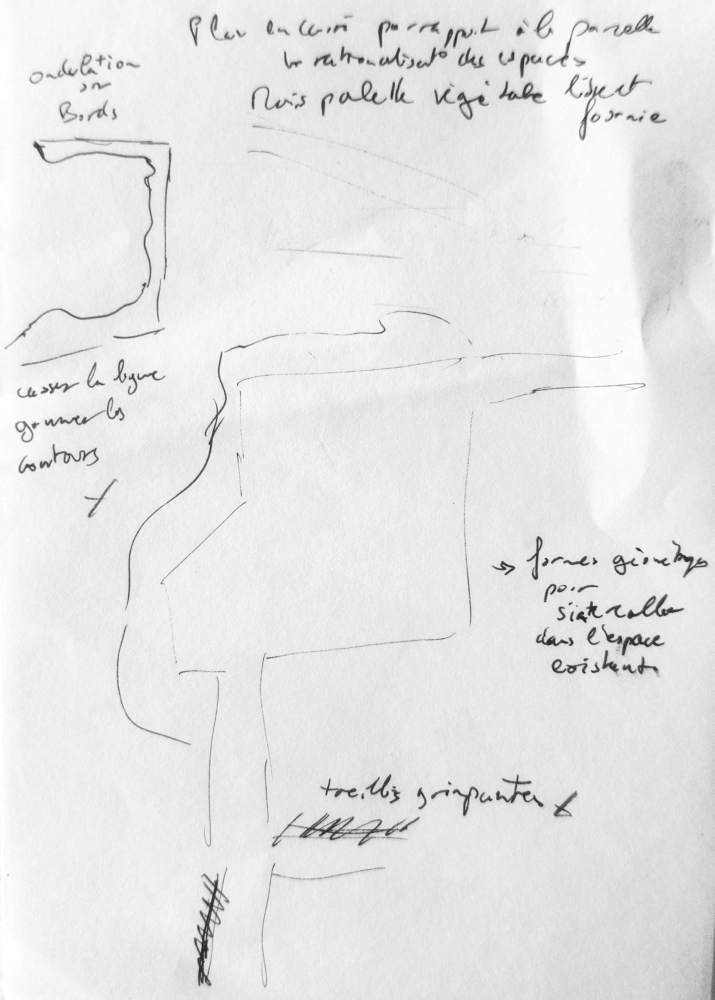 Plan en carré par rapport à la parcelle
rationalisat° des espaces
Mais palette végétale libre et
fournie
ondulation
sur
Bords
casser la ligne
gommer les
contours
→ formes géométriques
pour
dans l'espace
existant.
treillis grimpantes